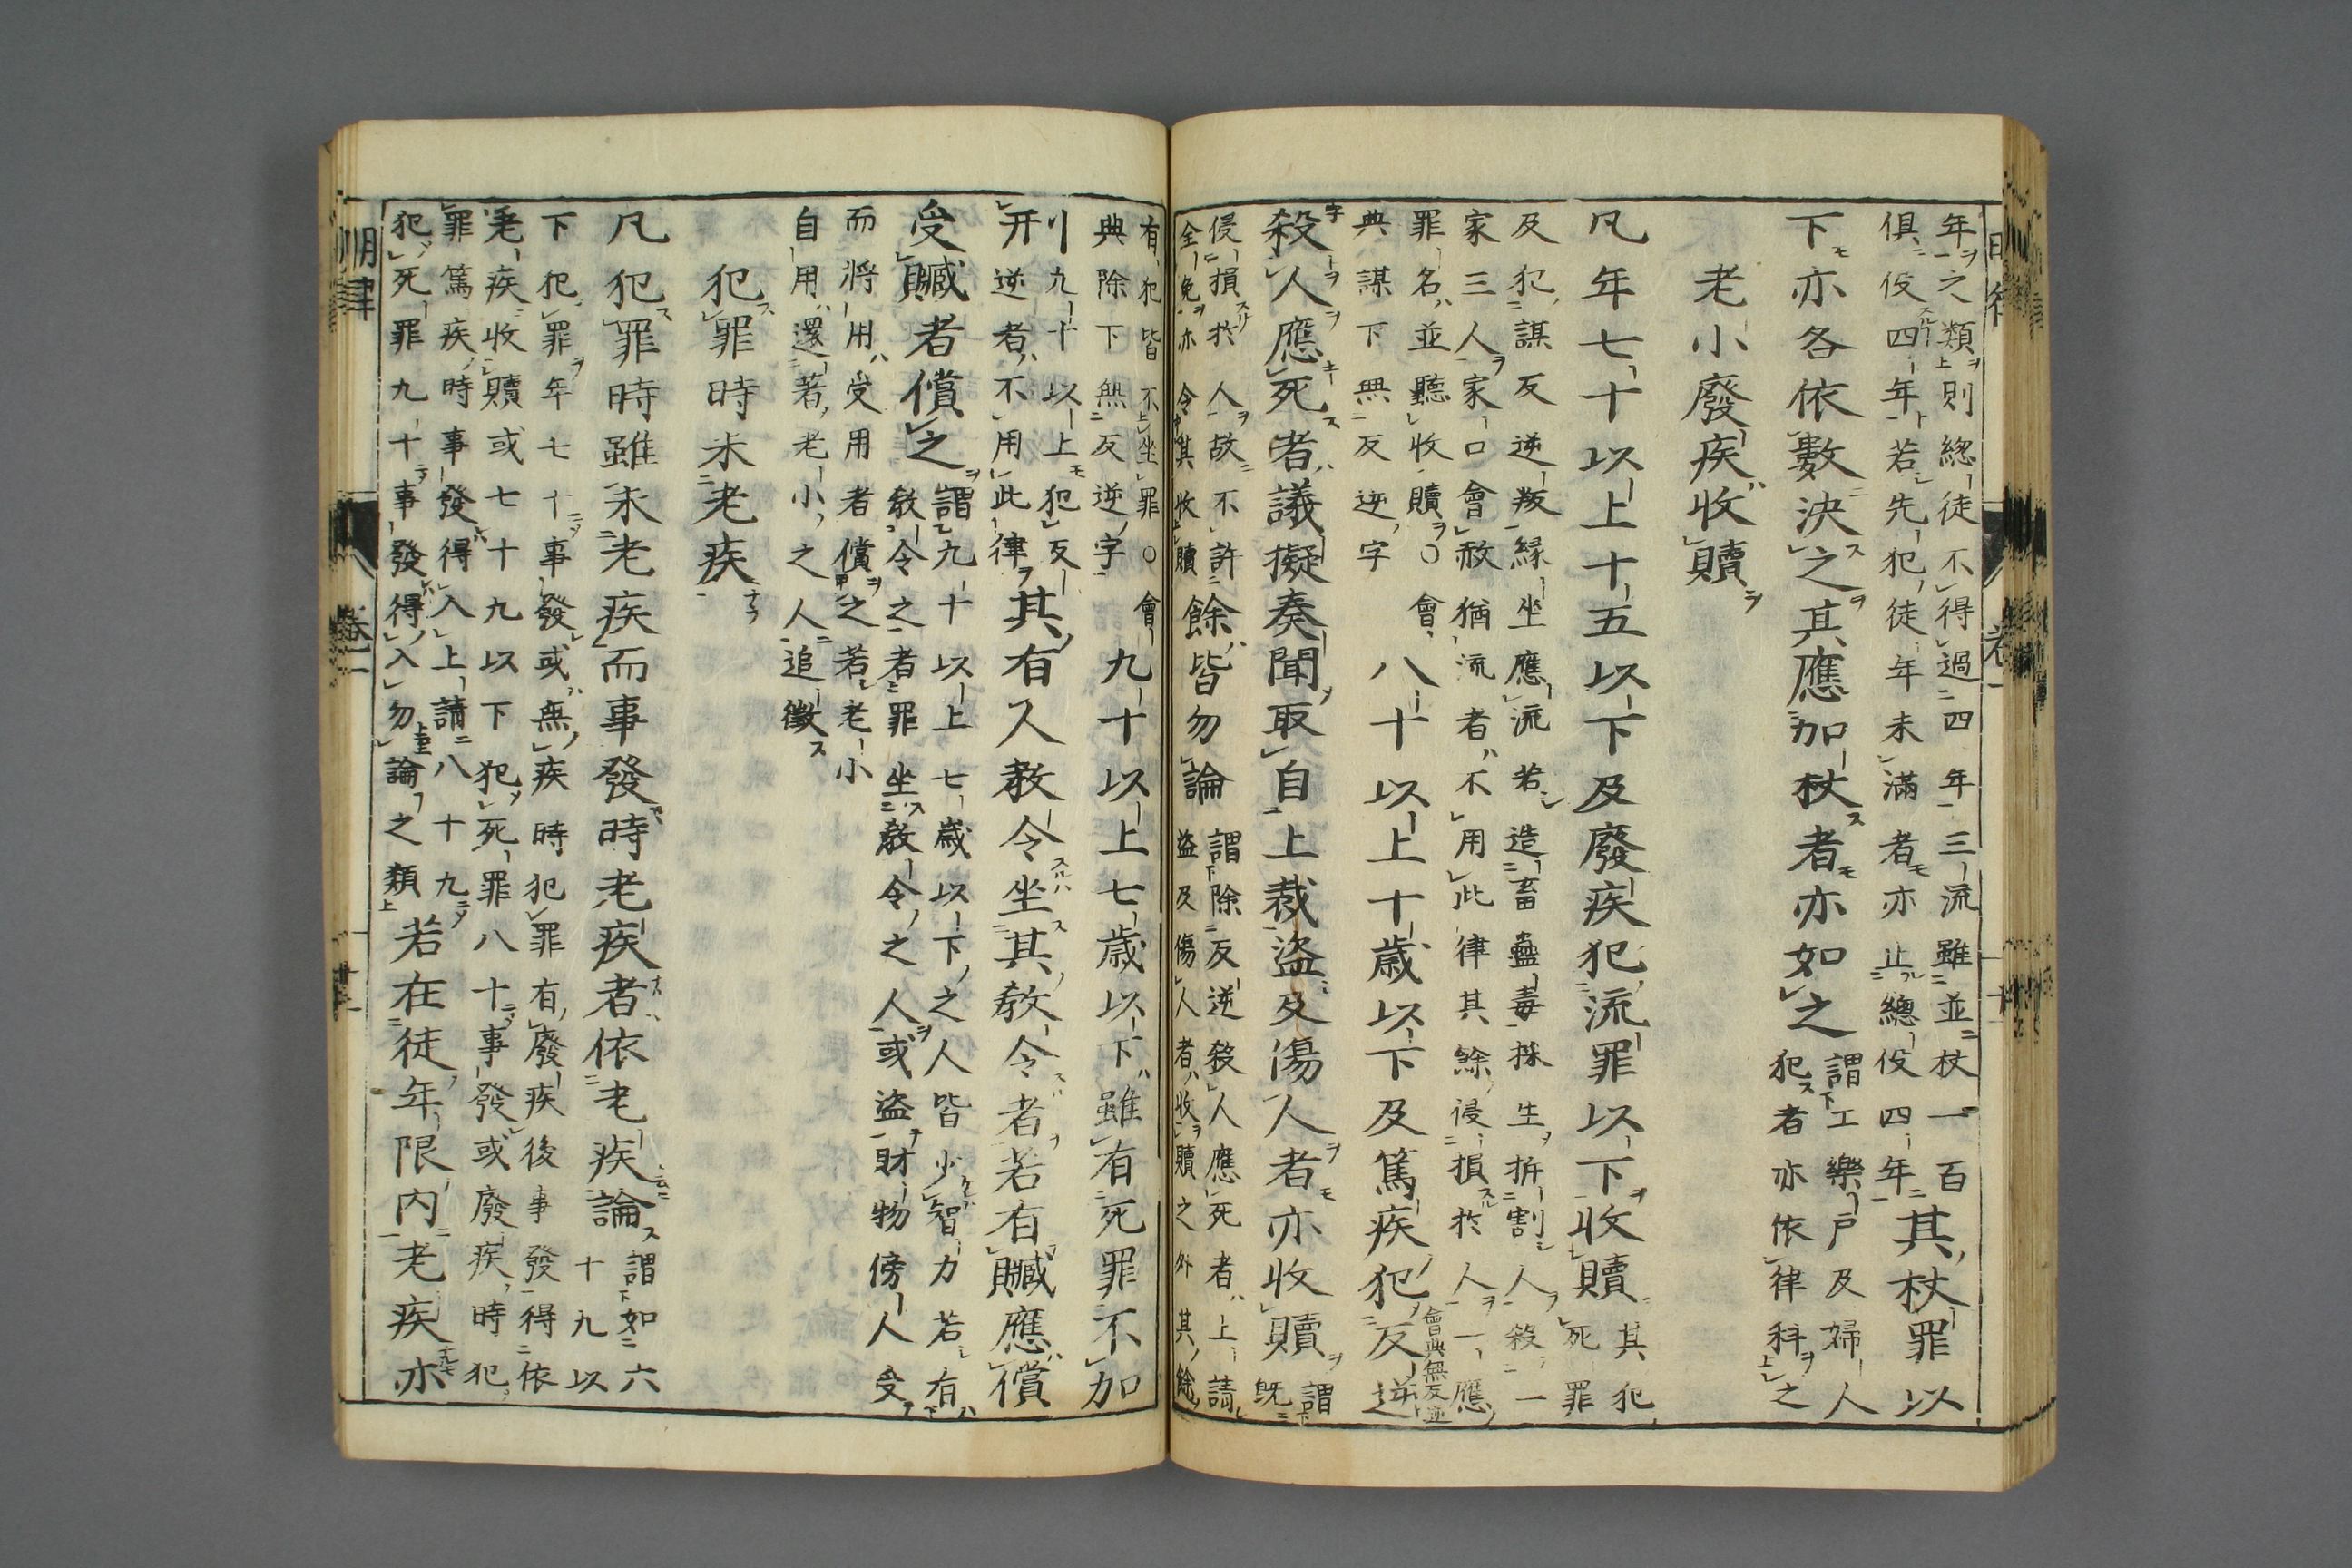 年之類則總徒不得過四年三流雖並杖一百
俱伇四年若先犯徒年未滿者亦止總伇四年
其杖罪以
下亦各依數決之其應加杖者亦如之
謂工樂戶及婦人
犯者亦依律科之
老小廢疾收贖
凡年七十以上十五以下及廢疾犯流罪以下收贖
其犯
死罪
及犯謀反逆叛緣坐應流若造畜蠱毒採生拆割人殺一
家三人家口會赦猶流者不用此律其餘侵損於人一應
罪名並聽收贖○會
典謀下無反逆字
八十以上十歲以下及篤疾犯反逆
會典無反逆
字
殺人應死者議擬奏聞取自上裁盜及傷人者亦收贖
謂
既
侵損於人故不許
全免亦令其收贖
餘皆勿論
謂除反逆殺人應死者上請
盜及傷人者收贖之外其餘
有犯皆不坐罪○會
典除下無反逆字
九十以上七歲以下雖有死罪不加
刑
九十以上犯反
逆者不用此律
其有人教令坐其教令者若有贓應償
受贓者償之
謂九十以上七歲以下之人皆少智力若有
教令之者罪坐教令之人或盜財物傍人受
而將用受用者償之若老小
自用還若老小之人追徵
犯罪時未老疾
凡犯罪時雖未老疾而事發時老疾者依老疾論
謂如六
十九以
下犯罪年七十事發或無疾時犯罪有廢疾後事發得依
老疾收贖或七十九以下犯死罪八十事發或廢疾時犯
罪篤疾時事發得入上請八十九
犯死罪九十事發得入勿論之類
若在徒年限內老疾亦
明律